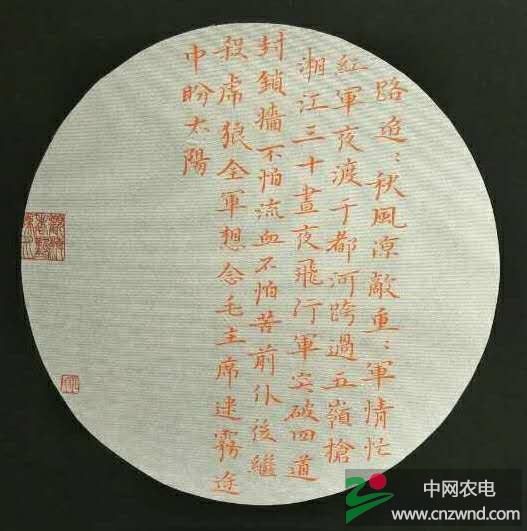 路迢：秋風凉敵重：軍情忙
紅軍夜渡于都河跨過五嶺搶
湘江三十晝夜飛行軍突破四道
封鎖墻不怕流血不怕苦前仆後繼
殺虎狼全軍想念毛主席迷霧途
中盼太陽
中网农电
www.cnzwnd.com